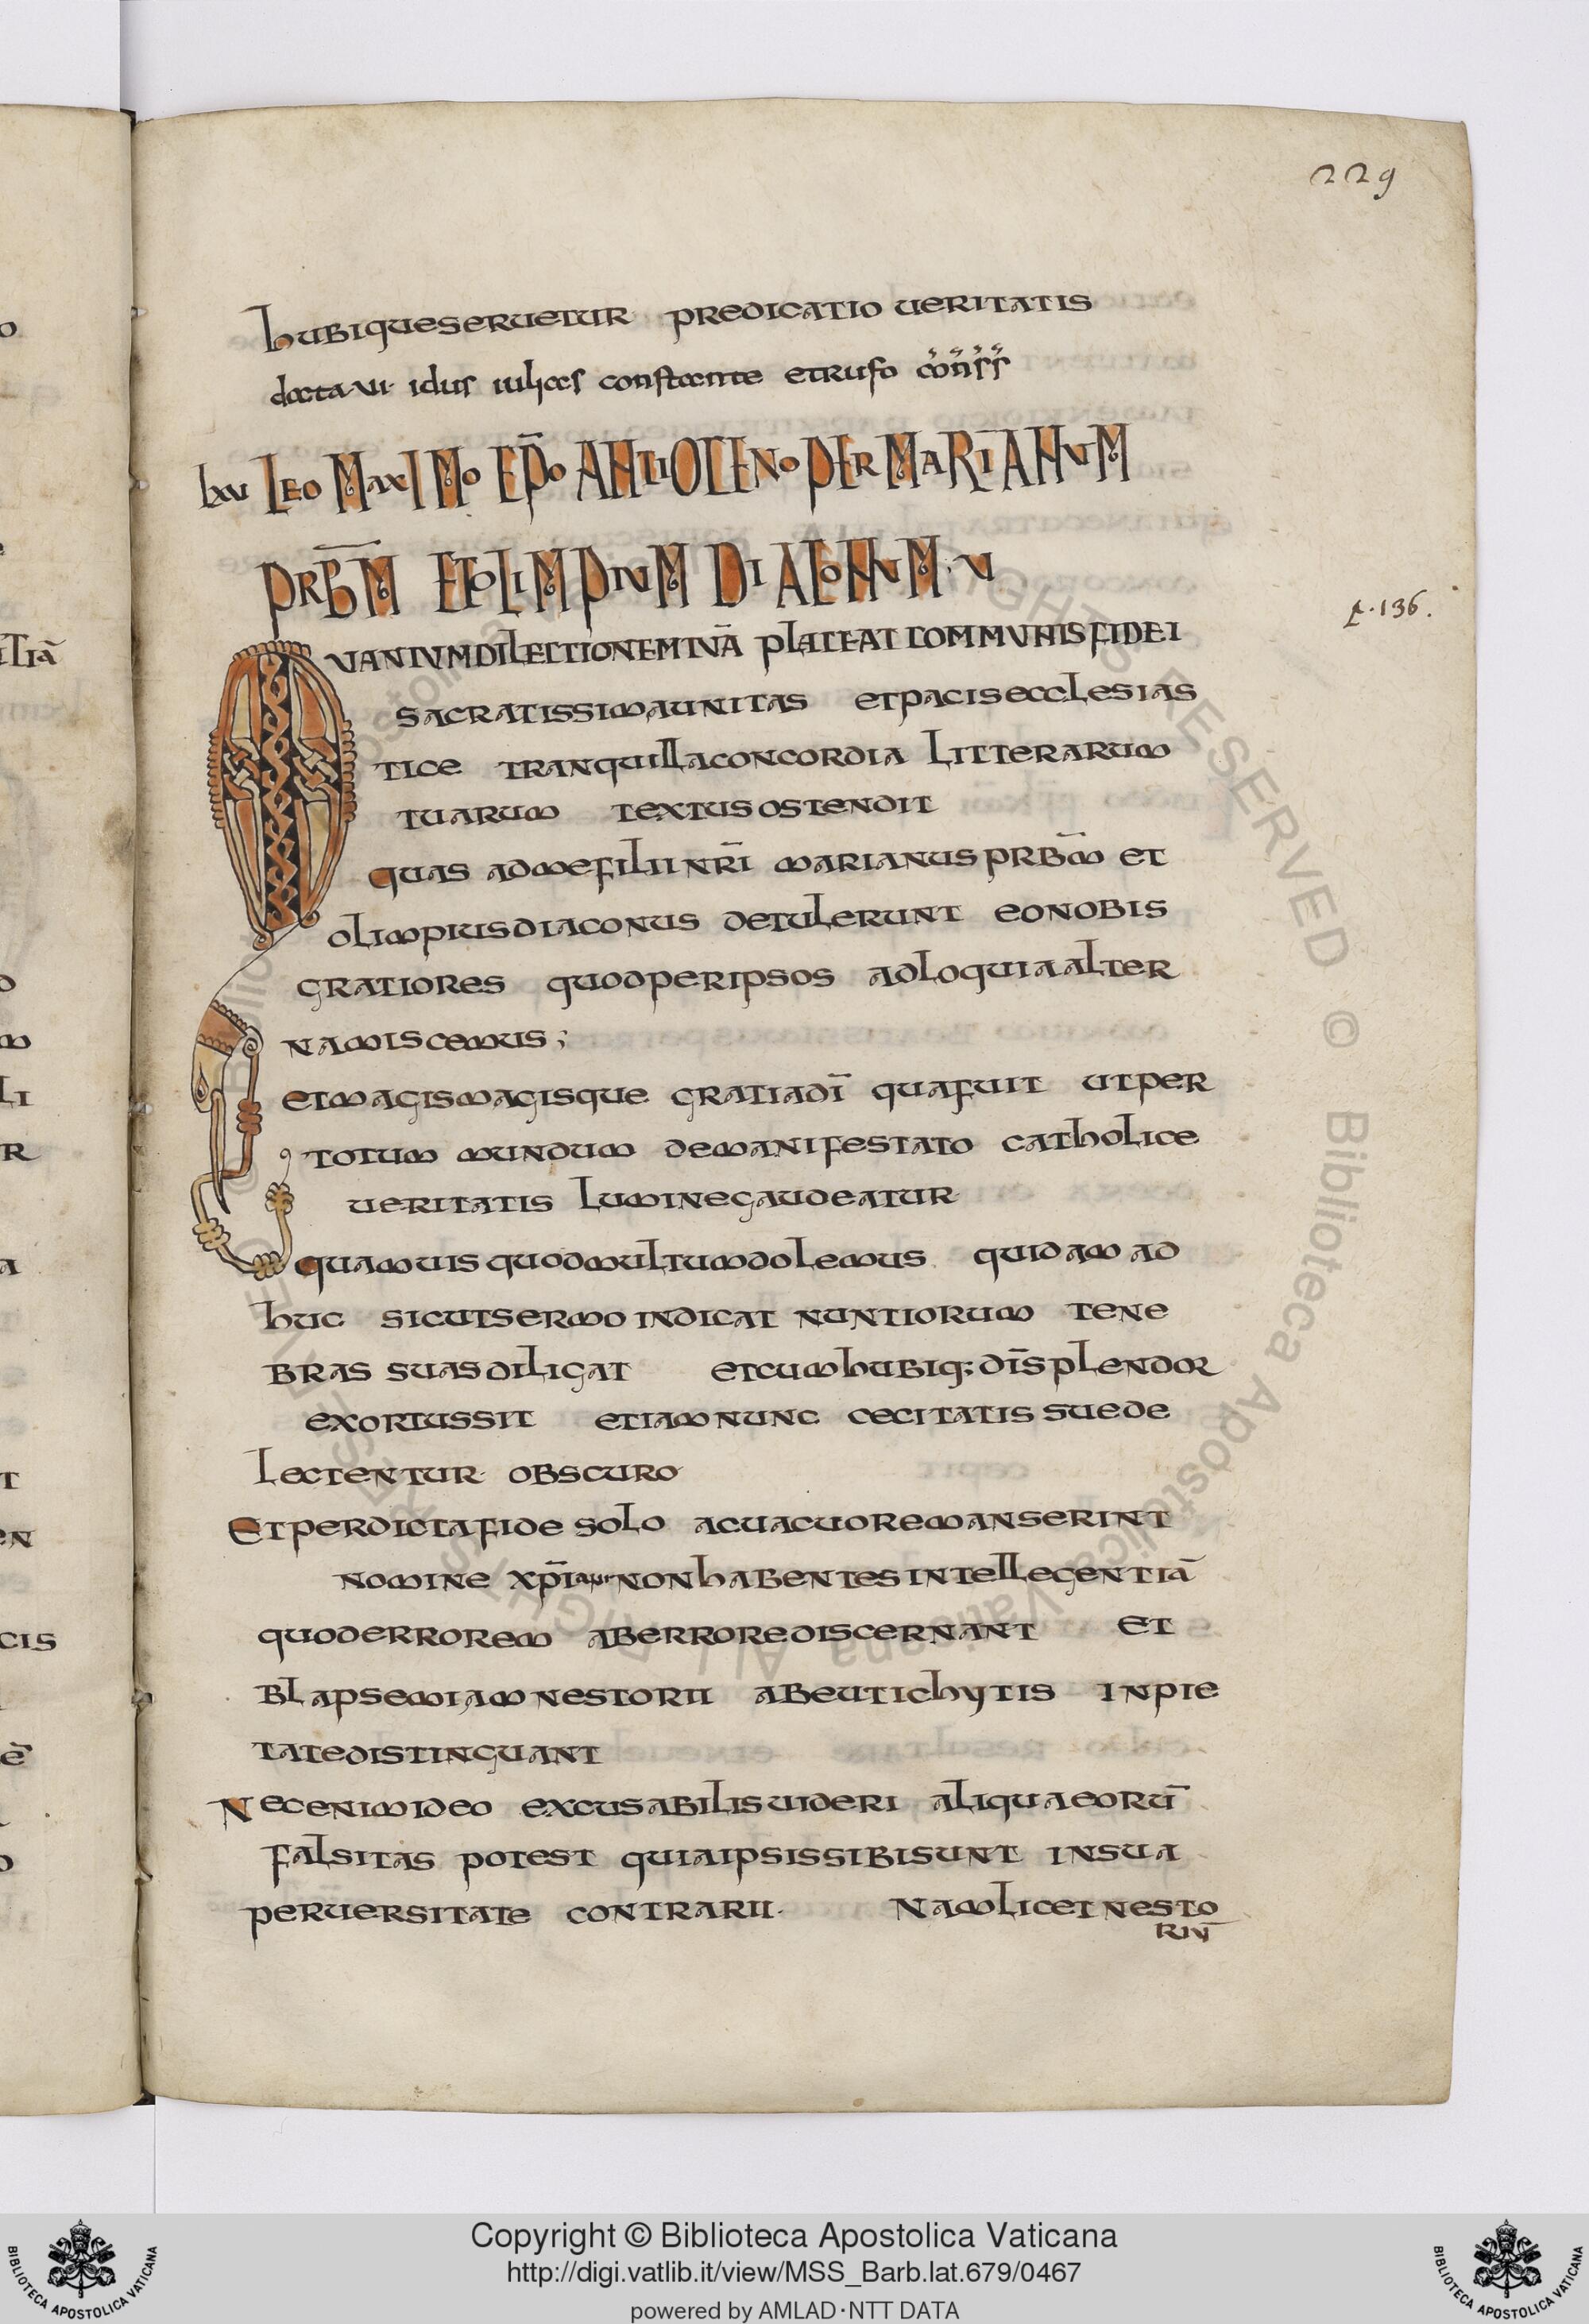 229
hubiqueseruetur predicatio ueritatis
data vi idus iulias constante et rufo cōnss
lxv LEO MAXIMO EP̄O ANTIOCENO PER MARIANUM
PRB̄M ET OLIMPIUM DIACONUM · U
QUANTUM DILECTIONEM TUĀ PLACEAT COMMUNIS FIDEI
ƚ·136.
sacratissima unitas et pacis ecclesias
tice tranquilla concordia litterarum
tuarum textus ostendit
quas ad me filii nr̄i marianus prb̄m et
olimpius diaconus detulerunt eo nobis
gratiores quod per ipsos adloquia alter
na miscemus;
et magis magisque gratia dī qua fuit ut per
totum mundum demanifestato catholice
ueritatis lumine gaudeatur
quamuis quod multum dolemus quidam ad
huc sicut sermo indicat nuntiorum tene
bras suas diligat et cum hubiq; dīsplendor
exortus sit etiam nunc cecitatis suede
lectentur obscuro
Et perdicta fide solo acuacuo remanserint
nomine xp̄ian non habentes intellegentiā
quod errorem ab errore discernant et
blapsemiam nestorii ab eutichytis inpie
tate distinguant
Nec enim ideo excusabilis uideri aliqua eorū
falsitas potest quia ipsis sibi sunt in sua
peruersitate contrarii· Nam licet nesto
riū
o
e
tiā
o
m
li
r
a
t
en
cis
ē
o
Copyright © Biblioteca Apostolica Vaticana
http://digi.vatlib.it/view/MSS_Barb.lat.679/0467
powered by AMLAD·NTT DATA
BIBLIOTECA APOSTOLICA VATICANA
BIBLIOTECA APOSTOLICA VATICANA
© Biblioteca Apostolica Vaticana ALL RIGHTS RESERVED